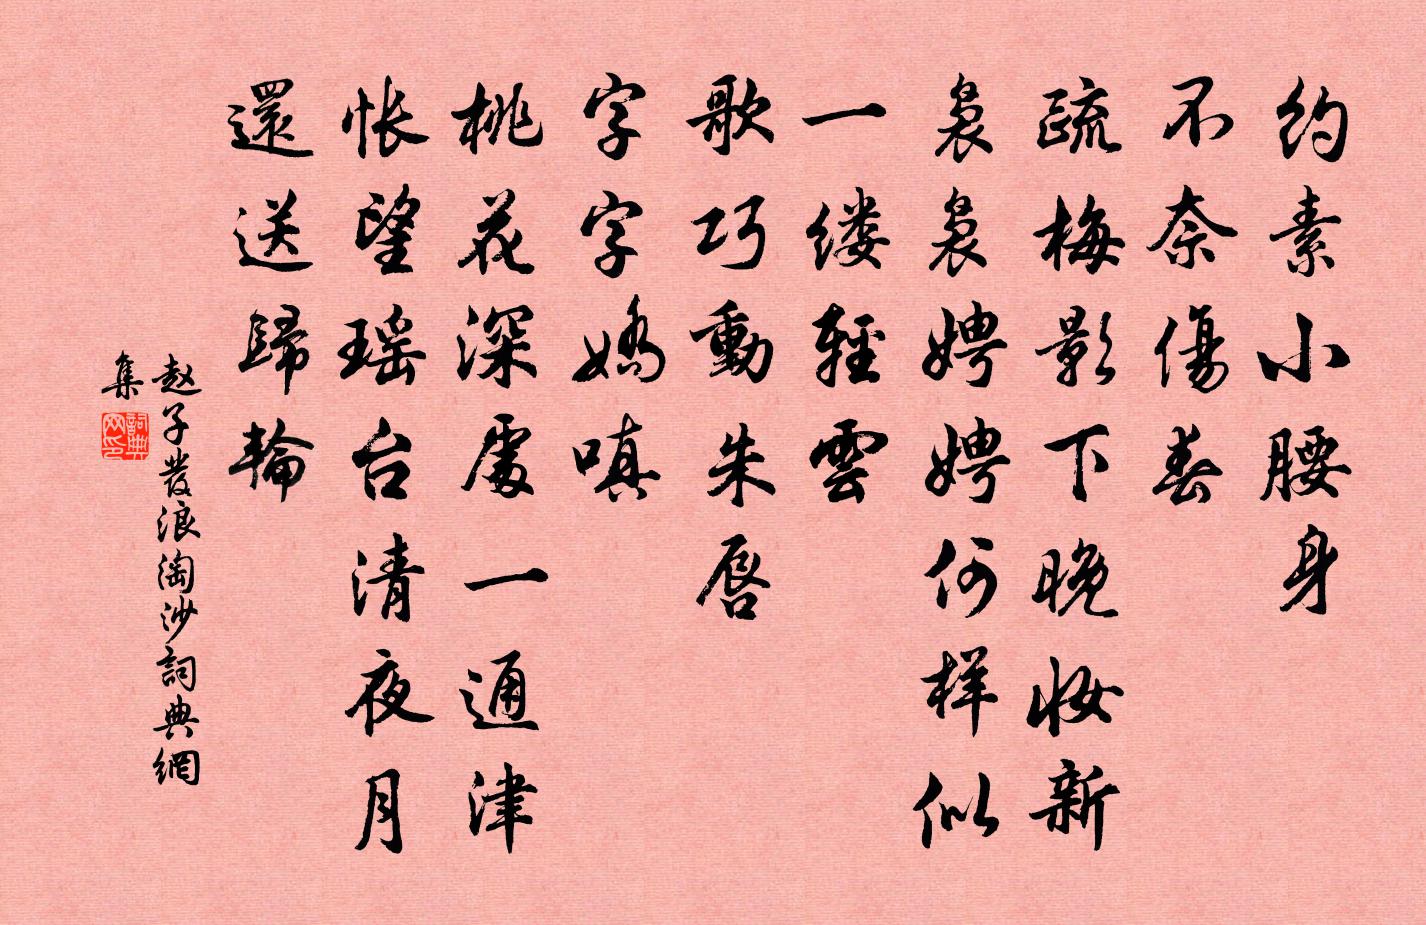 約素小腰身
不奈傷春
疏梅影下晚妝新
裊裊娉娉何样似
一缕輕雲
歌巧動朱唇
字字嬌嗔
桃花深處一通津
悵望瑶台清夜月
還送歸輪
赵子發浪淘沙詞典網
集
詞典
网印